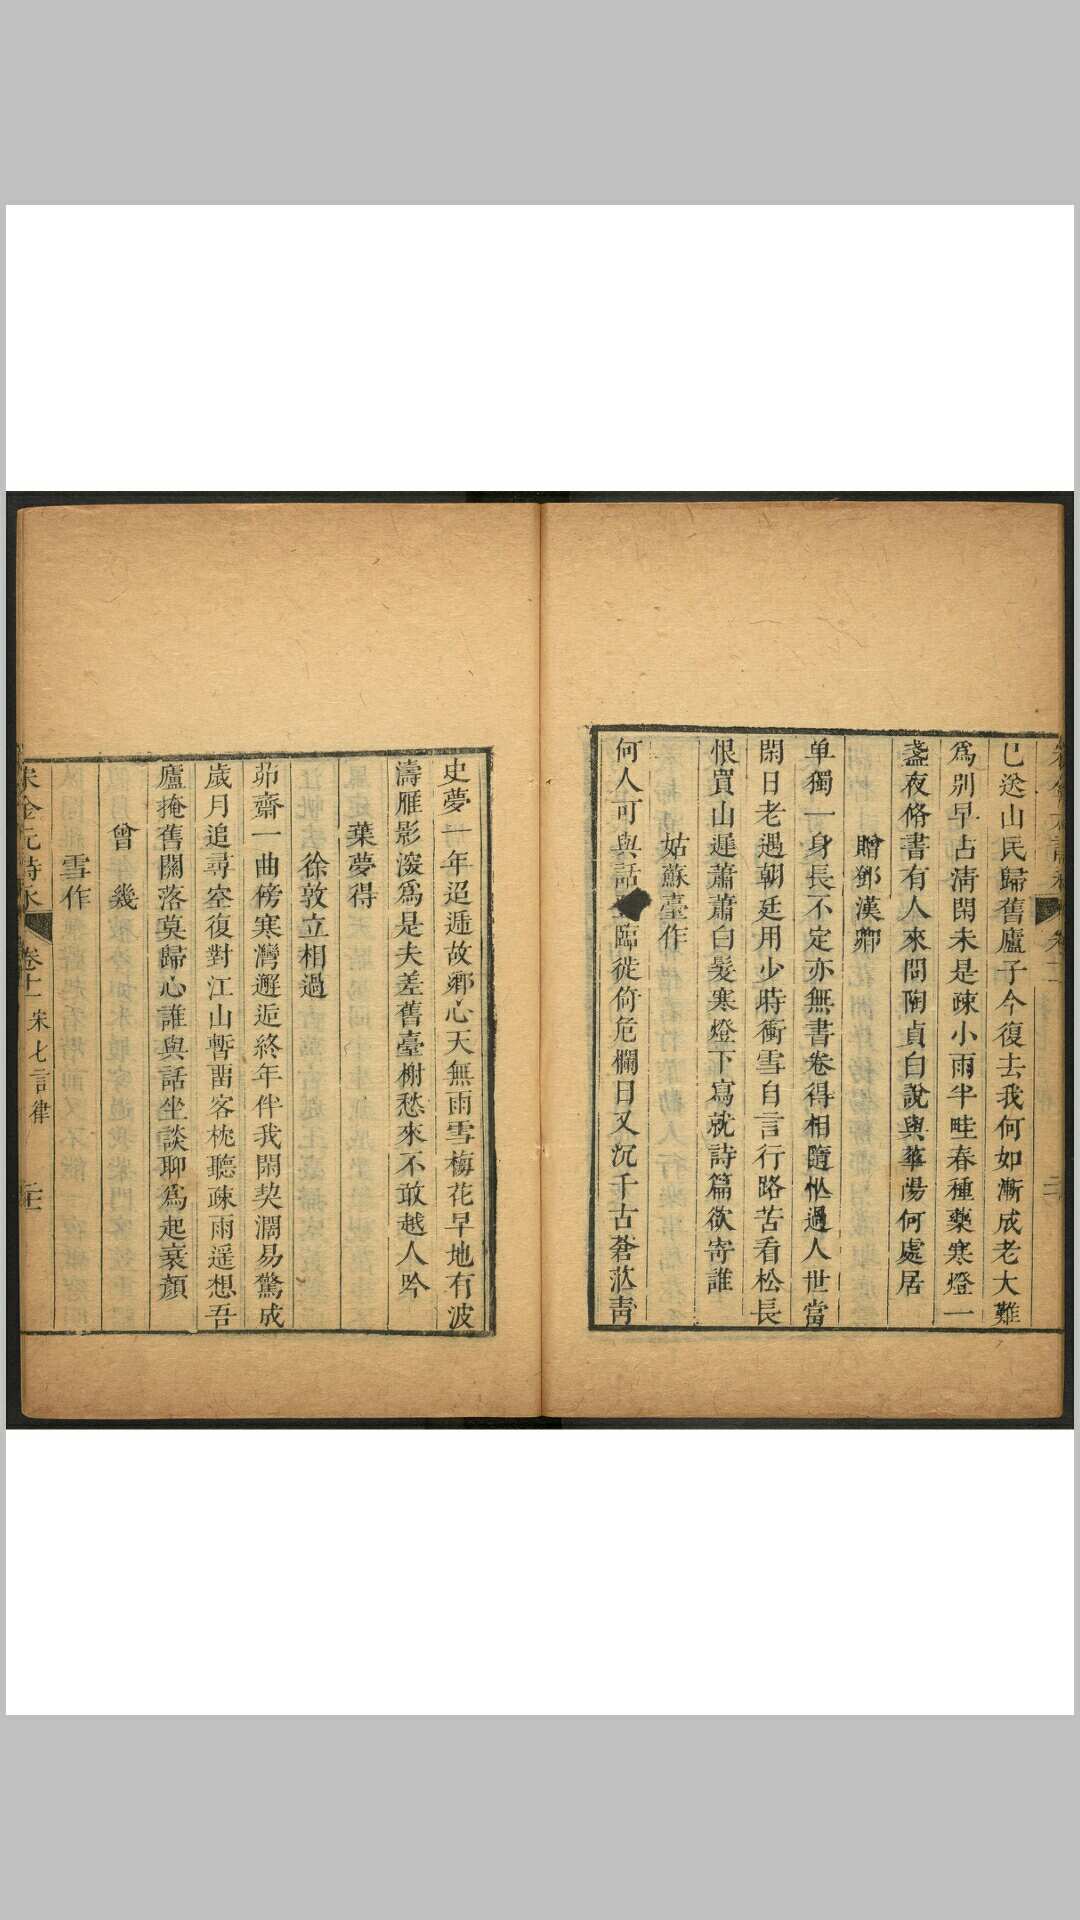 已送山民歸舊廬子今復去我何如漸成老大難
爲別早占淸閑未是疎小雨半畦春種藥寒燈一
盞夜脩書有人來問陶貞白說與華陽何處居
贈鄧漢卿
单獨一身長不定亦無書卷得相隨怂過人世當
閑日老遇朝廷用少時衝雪自言行路苦看松長
恨買山遲蕭蕭白髮寒燈下寫就詩篇欲寄誰
姑蘇臺作
何人可與話 臨徙倚危欄日又沉千古蒼茫靑
史夢一年迢遞故鄕心天無雨雪梅花早地有波
濤雁影深爲是夫差舊臺榭愁來不敢越人吟
葉夢得
徐敦立相過
茆齋一曲傍寒灣邂逅終年伴我閑契濶易驚成
歲月追尋空復對江山暫畱客枕聽疎雨遥想吾
廬掩舊關落莫歸心誰與話坐談聊爲起衰顏
曾幾
雪作
宋金元詩永 卷十一 宋七言律